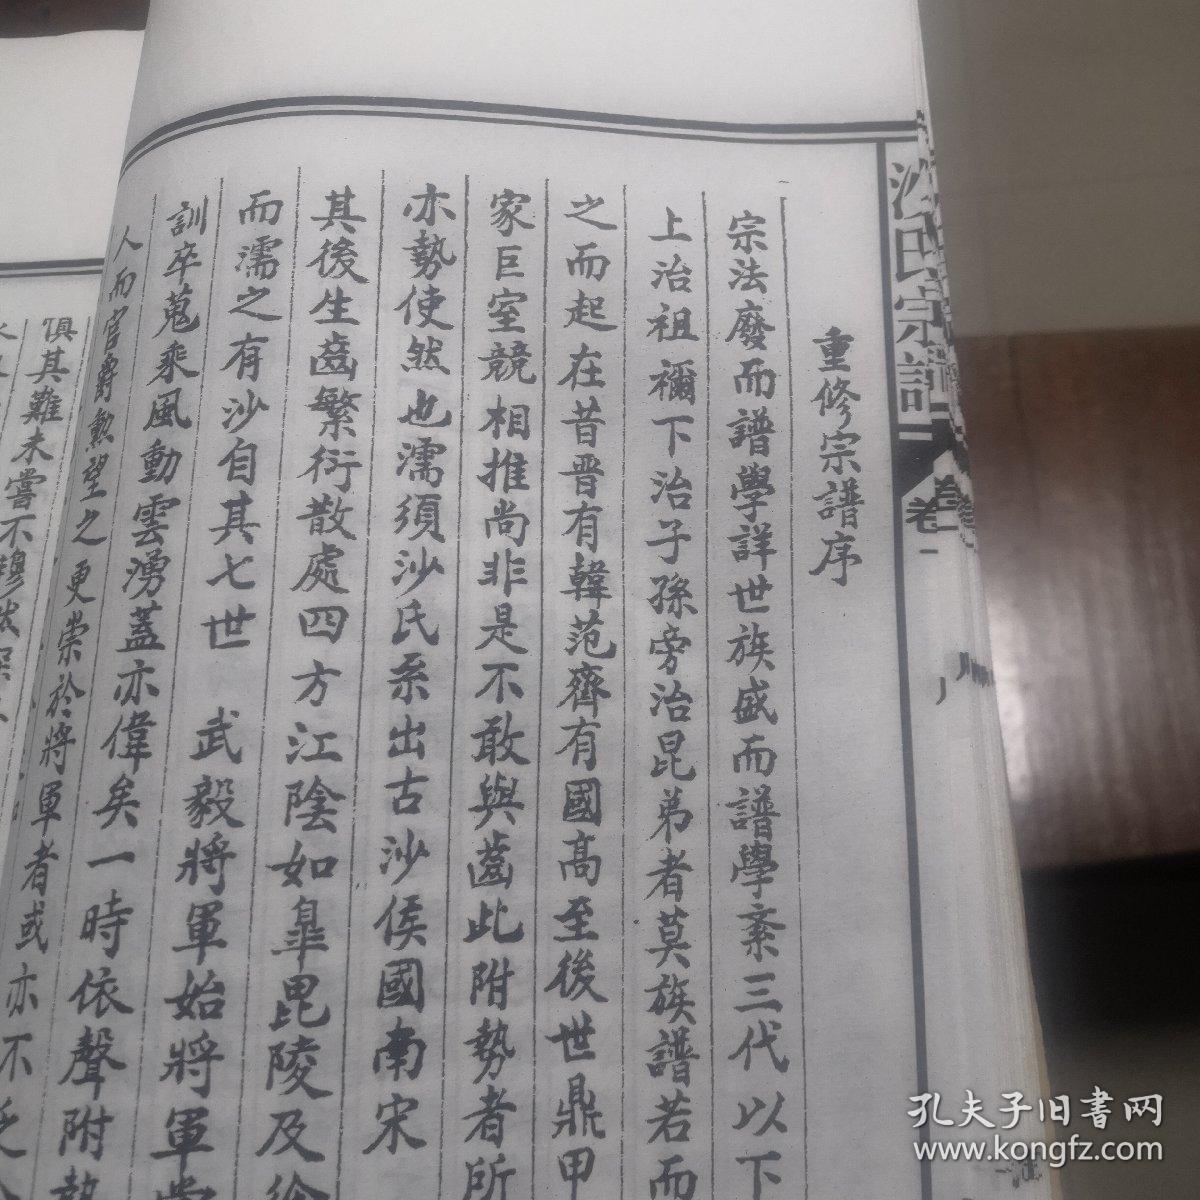 沙氏宗譜
卷一
重修宗譜序
宗法廢而譜學詳世族盛而譜學紊三代以下
上治祖禰下治子孫旁治昆弟者莫族譜若而
之而起在昔晋有韓范齊有國高至後世鼎甲
家巨室競相推尚非是不敢與齒此附勢者所
亦勢使然也濡須沙氏系出古沙侯國南宋
其後生齒繁衍散處四方江陰如皐毘陵及徐
而濡之有沙自其七世 武毅將軍始將軍當
訓卒蒐乘風動雲湧蓋亦偉矣一時依聲附勢
人而官爵勲望之更崇於將軍者或亦不乏
俱其難未嘗不
孔夫子旧書网
www.kongfz.com